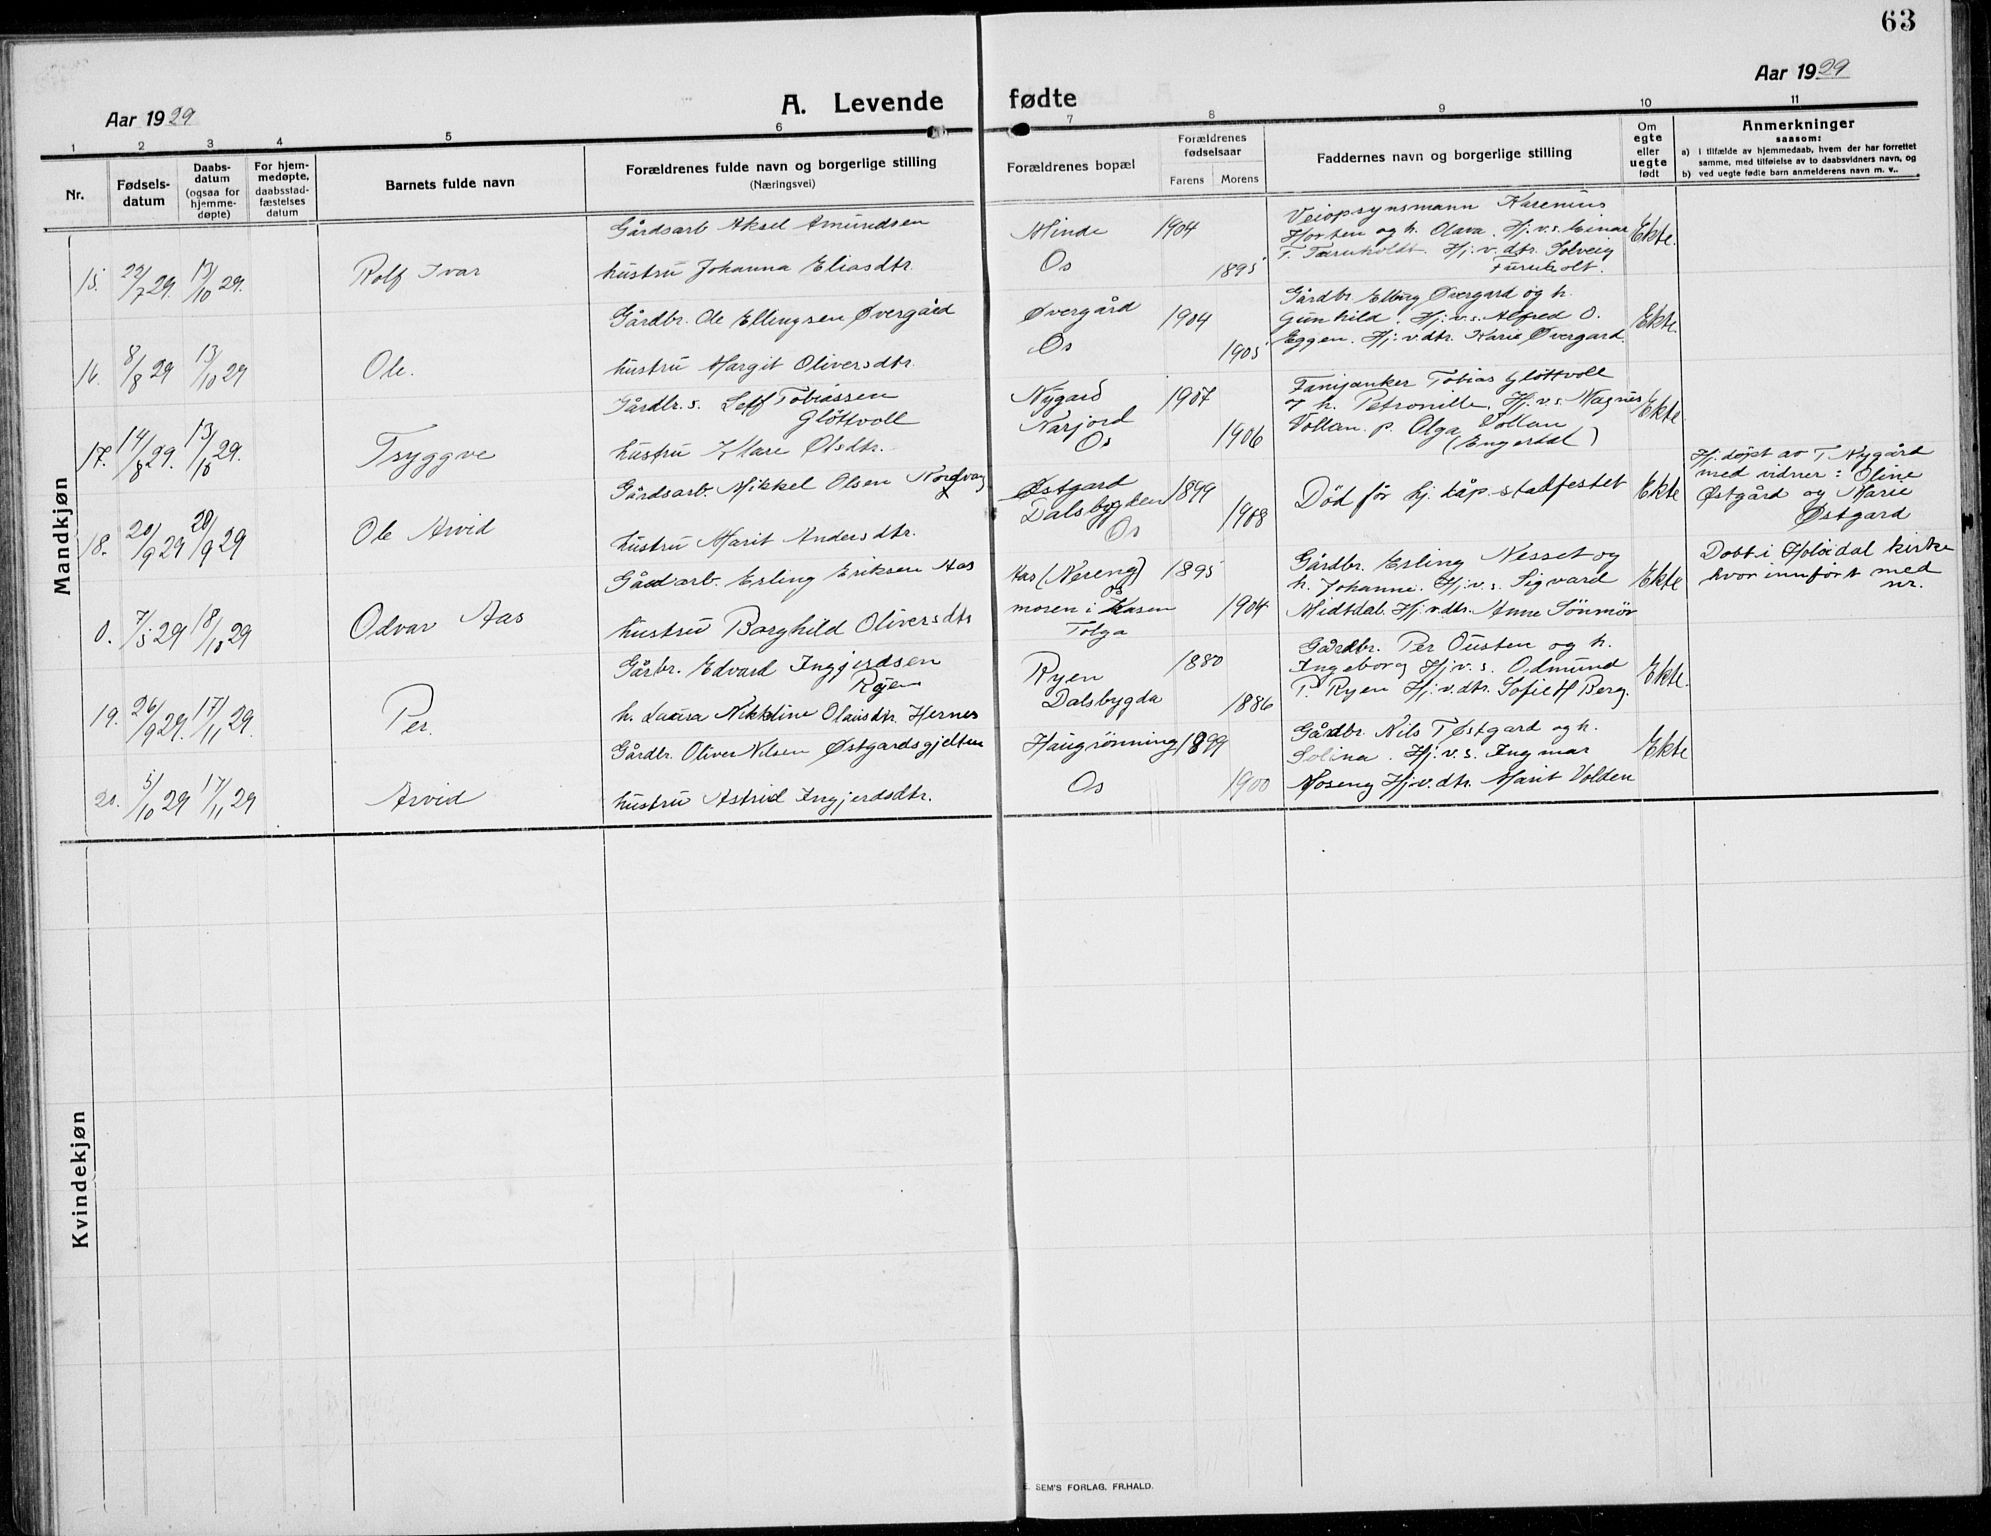 63
Aar 1929
A. Levende fødte
Aar 1929
1 2 3 4 5 6 7 8 9 10 11
Nr.
Fødsels-
datum
Daabs-
datum
(ogsaa for
hjemme-
døpte)
For hjem-
medøpte,
daabsstad-
fæstelses
datum
Barnets fulde navn
Forældrenes fulde navn og borgerlige stilling
(Næringsvei)
Forældrenes bopæl
Forældrenes
fødselsaar
Farens Morens
Faddernes navn og borgerlige stilling
Om
egte
eller
uegte
født
Anmerkninger
saasom:
a) i tilfælde av hjemmedaab, hvem der har forrettet
samme, med tilføielse av to daabsvidners navn, og
b) ved uegte fødte barn anmelderens navn m. v..
Mandkjøn
15. 22/7 29. 13/10 29. Rolf Ivar
Gårdsarb Aksel Amundsen
hustru Johanna Eliasdtr.
Minde 1904
Os 1895
Veiopsynsmann Karenius
Horten og h. Olava. Hj. v. s. Einar
F. Furuholdt. Hj. v. dtr. Solveig
Furuholt.
Ekte.
16. 8/8 29 13/10 29 Ole.
Gårdbr. Ole Ellingsen Øvergård
hustru Margit Oliversdtr.
Øvergård 1904
Os 1905
Gårdbr. Elling Øvergard og h.
Gunhild. Hj. v. s. Alfred O.
Eggen. Hj. v. dtr. Karie Øvergard.
Ekte.
17. 14/8 29. 13/10 29. Tryggve
Gårdbr. s. Leif Tobiassen
Glöttvoll
hustru Klare Olsdtr.
Nygard 1907
Narjord
Os 1906
Fanejunker Tobias Glöttvoll
og h. Petronille. Hj. v. s. Magnus
Vollan. p. Olga Vollan
(Engerdal)
Ekte.
18. 20/9 29 20/9 29 Ole Arvid
Gårdsarb. Mikkel Olsen Nordvang
hustru Marit Andersdtr.
Østgard 1899
Dalsbygden
Os 1908
Död för hj. dåp stadfestet
Ekte
Hj. döpt av T. Nygård
med vidner: Oline
Østgård og Marie
Østgard
0. 7/5 29 18/10 29 Odvar Aas
Gårdarb. Erling Eriksen Aas
hustru Borghild Oliversdtr
Aas (Nereng) 1895
moren i Aasen 1904
Tolga
Gårdbr. Erling Nesset og
h. Johanne. Hj. v. s. Sigvard
Midtdal. Hj. v. dtr. Anne Sönmör
Ekte
Dobt i Holöidal kirke
hvor innfört med
nr.
19. 26/9 29. 17/11 29. Per.
Gårbr. Edvard Ingjerdsen
Ryen
h. Laura Nikkoline Olausdtr. Hernes
Ryen 1880
Dalsbygda 1886
Gårdbr. Per Ousten og h.
Ingeborg Hj. v. s. Odmund
P. Ryen Hj. v. dtr. Sofie H Berg.
Ekte.
20. 5/10 29 17/11 29 Arvid
Gårdbr. Oliver Nilsen Østgardsgjelten
hustru Astrid Ingjerdsdtr.
Haugrönning 1899
Os 1900
Gårdbr Nils T Østgard og h.
Solina. Hj. v. s. Ingmar
Moseng Hj. v. dtr. Marit Volden
Ekte
Kvindekjøn
E. SEM'S FORLAG, FR.HALD.